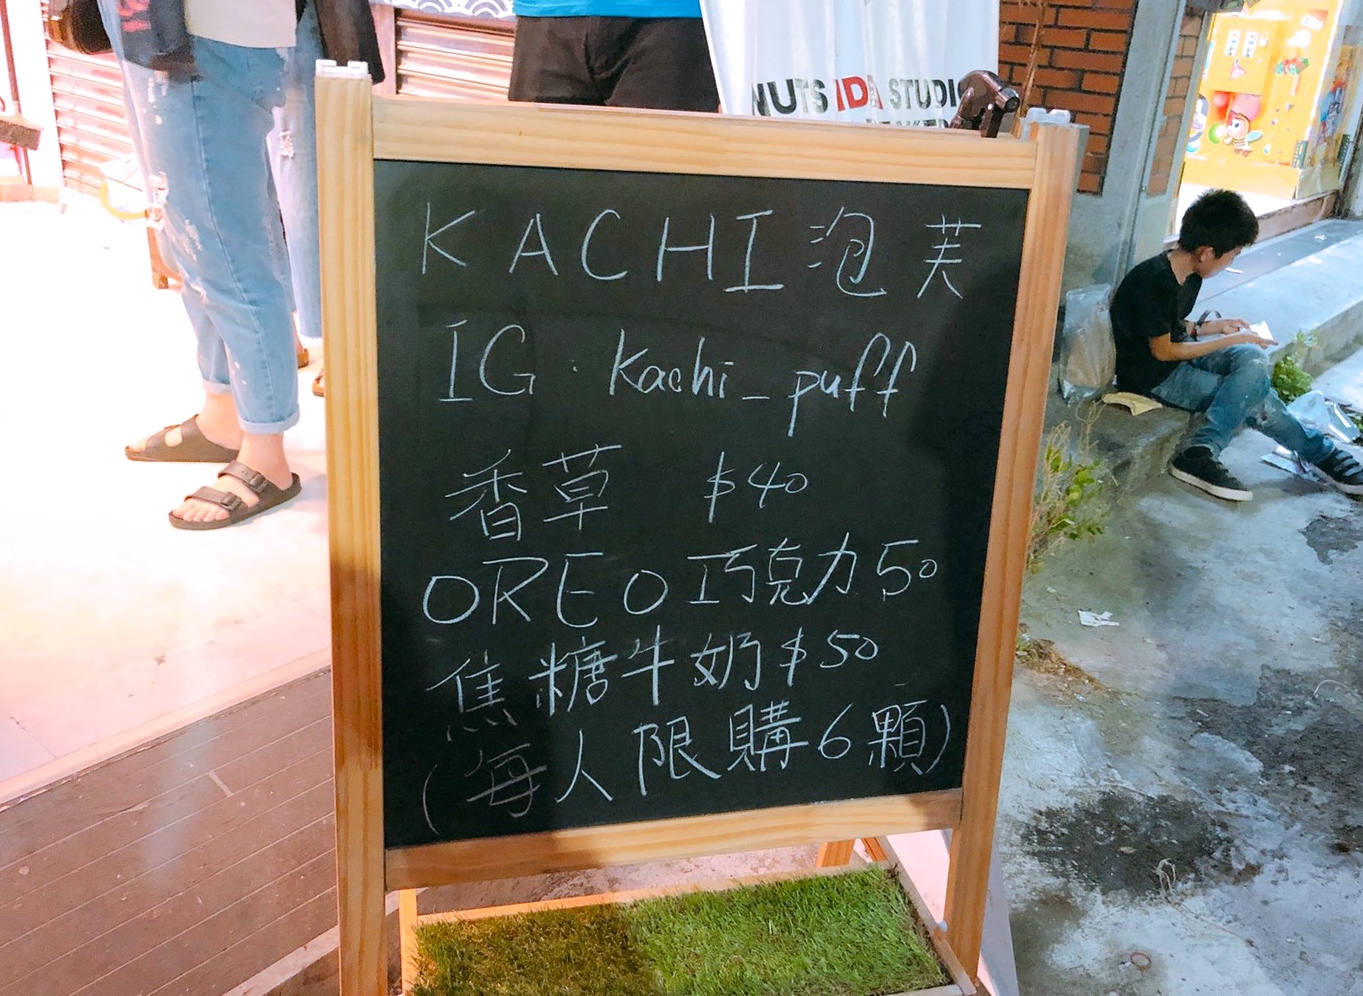 NUTS IDA STUDIO
KACHI 泡芙
IG : kachi_puff
香草 $40
OREO 巧克力 50
焦糖牛奶 $50
(每人限購6顆)